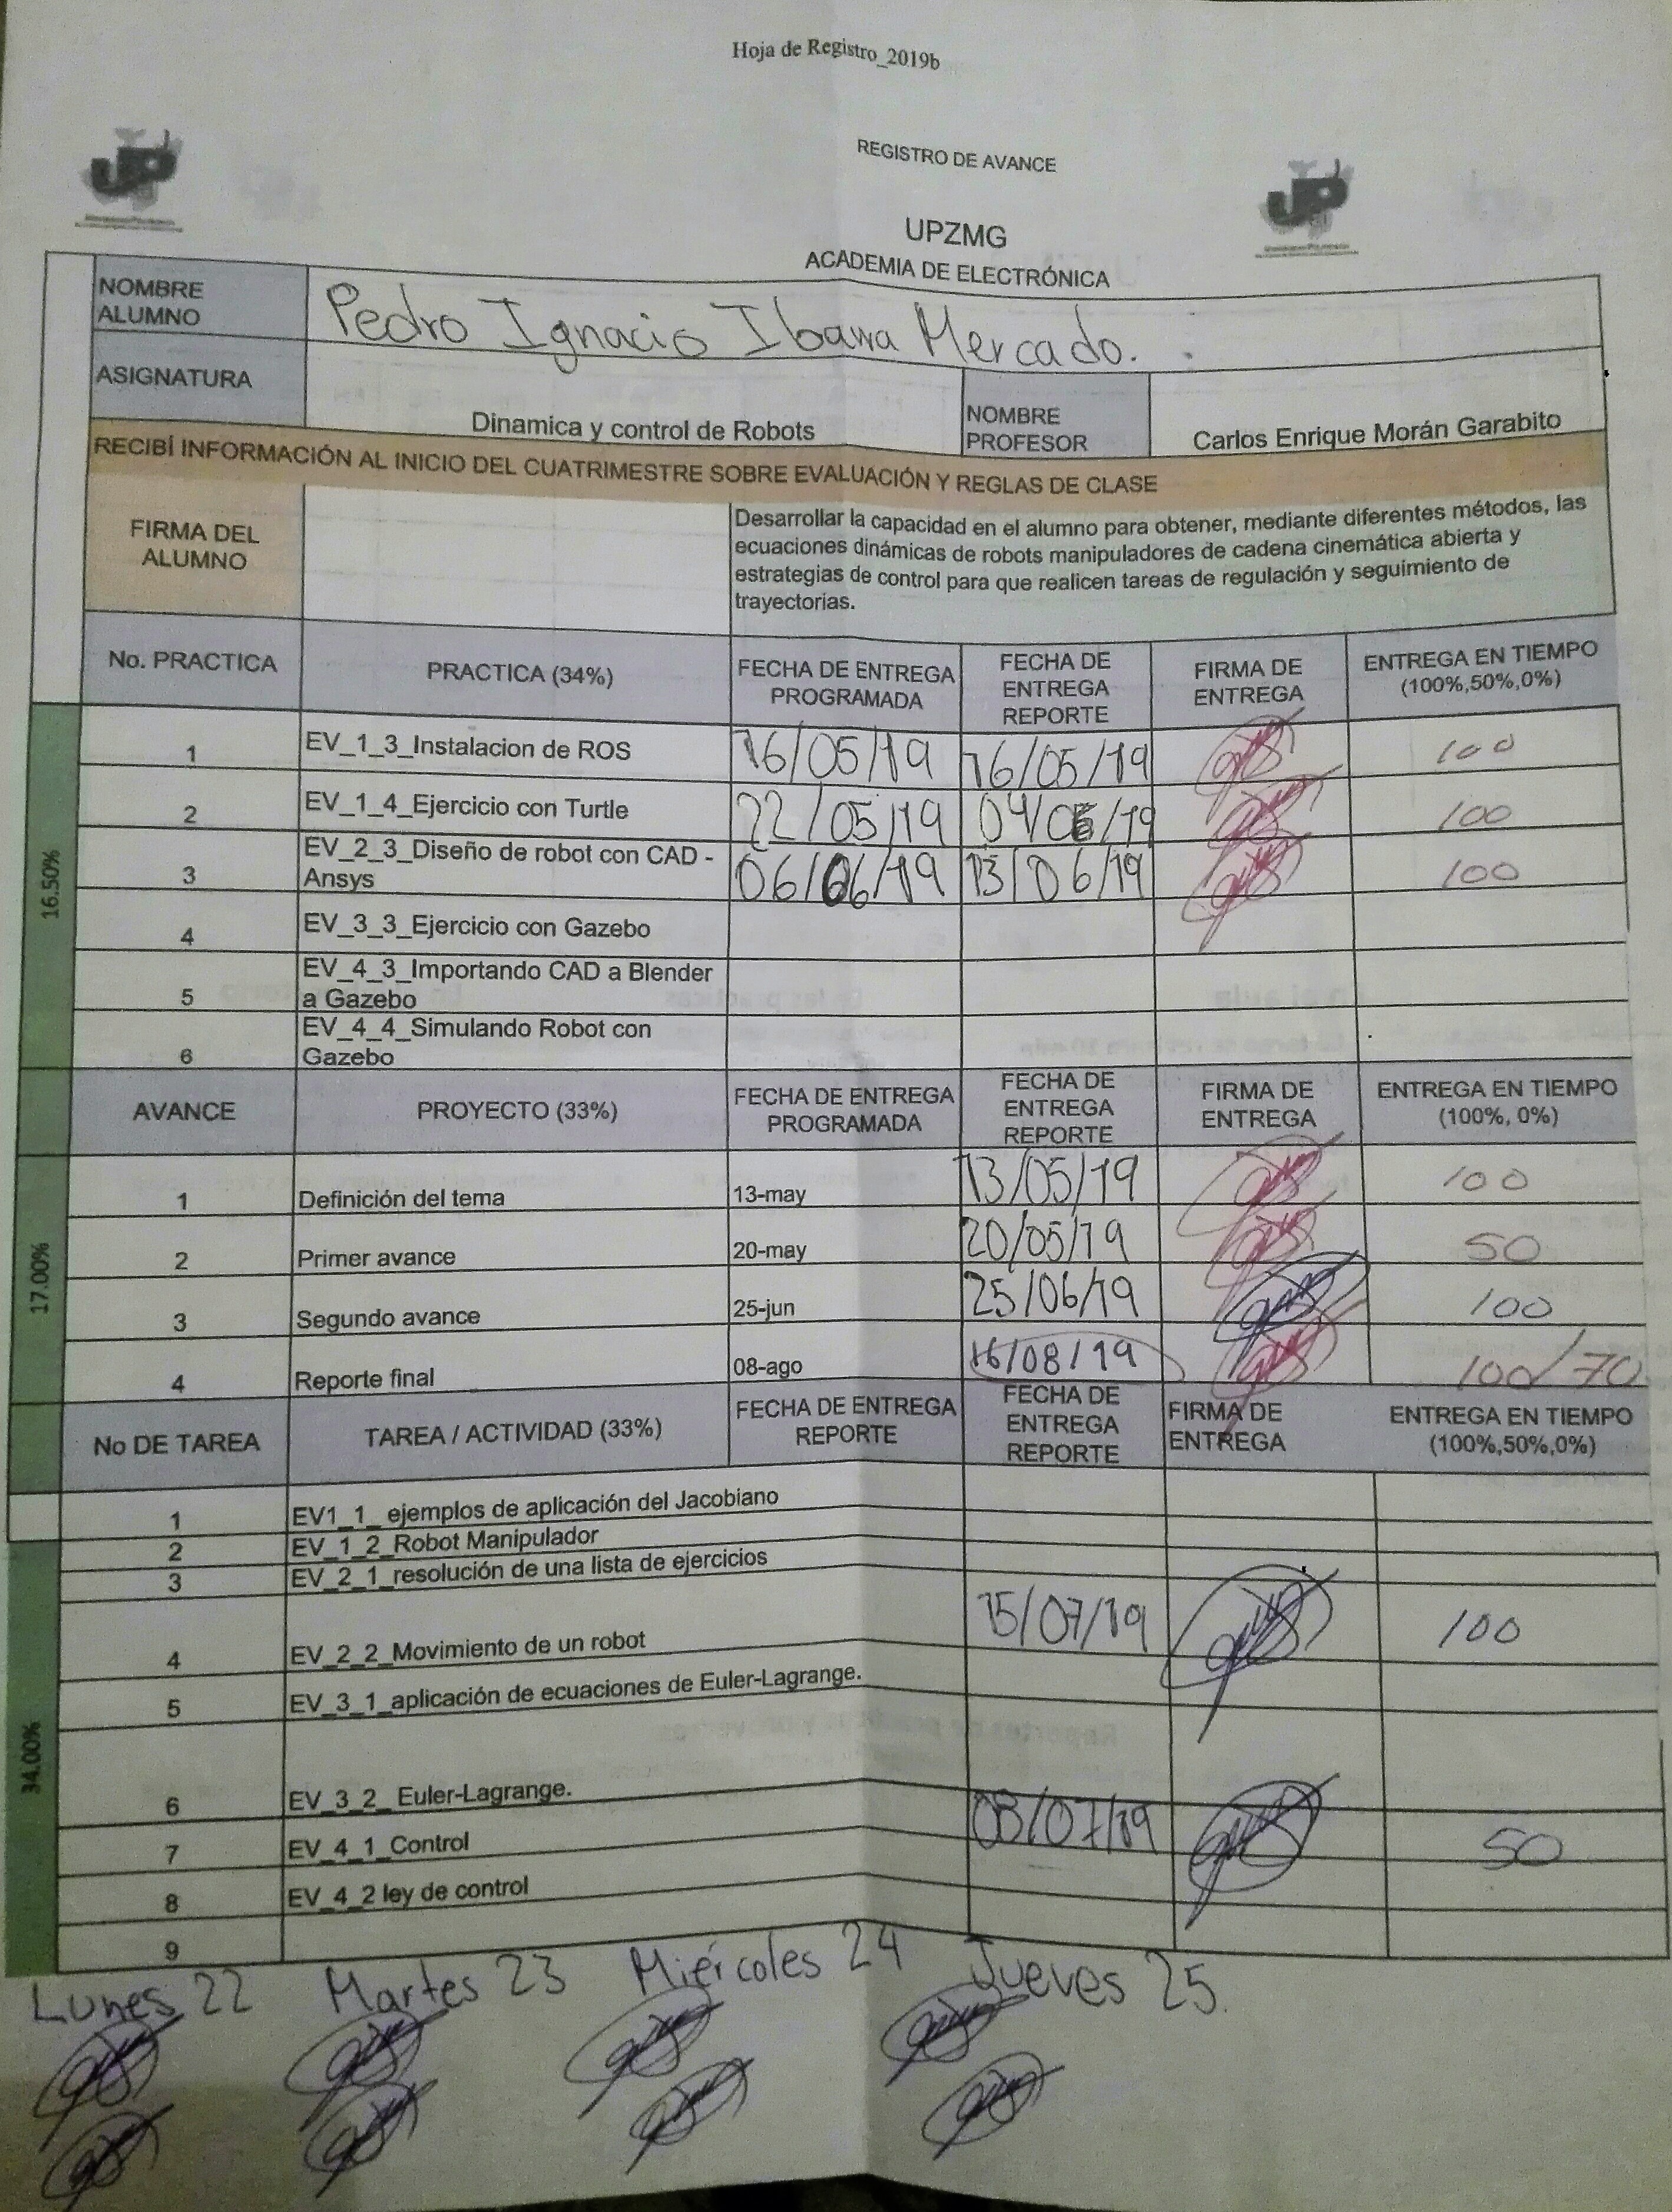 Hoja de Registro_2019b
REGISTRO DE AVANCE
UPZMG
ACADEMIA DE ELECTRÓNICA
NOMBRE ALUMNO Pedro Ignacio Ibarra Mercado.
ASIGNATURA Dinamica y control de Robots NOMBRE PROFESOR Carlos Enrique Morán Garabito
RECIBÍ INFORMACIÓN AL INICIO DEL CUATRIMESTRE SOBRE EVALUACIÓN Y REGLAS DE CLASE
FIRMA DEL ALUMNO
Desarrollar la capacidad en el alumno para obtener, mediante diferentes métodos, las
ecuaciones dinámicas de robots manipuladores de cadena cinemática abierta y
estrategias de control para que realicen tareas de regulación y seguimiento de
trayectorias.
No. PRACTICA PRACTICA (34%) FECHA DE ENTREGA PROGRAMADA FECHA DE ENTREGA REPORTE FIRMA DE ENTREGA ENTREGA EN TIEMPO (100%,50%,0%)
16.50%
1 EV_1_3_Instalacion de ROS 16/05/19 16/05/19 100
2 EV_1_4_Ejercicio con Turtle 22/05/19 04/06/19 100
3 EV_2_3_Diseño de robot con CAD - Ansys 06/06/19 13/06/19 100
4 EV_3_3_Ejercicio con Gazebo
5 EV_4_3_Importando CAD a Blender a Gazebo
6 EV_4_4_Simulando Robot con Gazebo
AVANCE PROYECTO (33%) FECHA DE ENTREGA PROGRAMADA FECHA DE ENTREGA REPORTE FIRMA DE ENTREGA ENTREGA EN TIEMPO (100%, 0%)
17.00%
1 Definición del tema 13-may 13/05/19 100
2 Primer avance 20-may 20/05/19 50
3 Segundo avance 25-jun 25/06/19 100
4 Reporte final 08-ago 16/08/19 100/70
No DE TAREA TAREA / ACTIVIDAD (33%) FECHA DE ENTREGA REPORTE FECHA DE ENTREGA REPORTE FIRMA DE ENTREGA ENTREGA EN TIEMPO (100%,50%,0%)
34.00%
1 EV1_1_ ejemplos de aplicación del Jacobiano
2 EV_1_2_Robot Manipulador
3 EV_2_1_resolución de una lista de ejercicios
4 EV_2_2_Movimiento de un robot 15/07/19 100
5 EV_3_1_aplicación de ecuaciones de Euler-Lagrange.
6 EV_3_2_ Euler-Lagrange.
7 EV_4_1_Control 03/07/19 50
8 EV_4_2 ley de control
9
Lunes 22 Martes 23 Miércoles 24 Jueves 25.